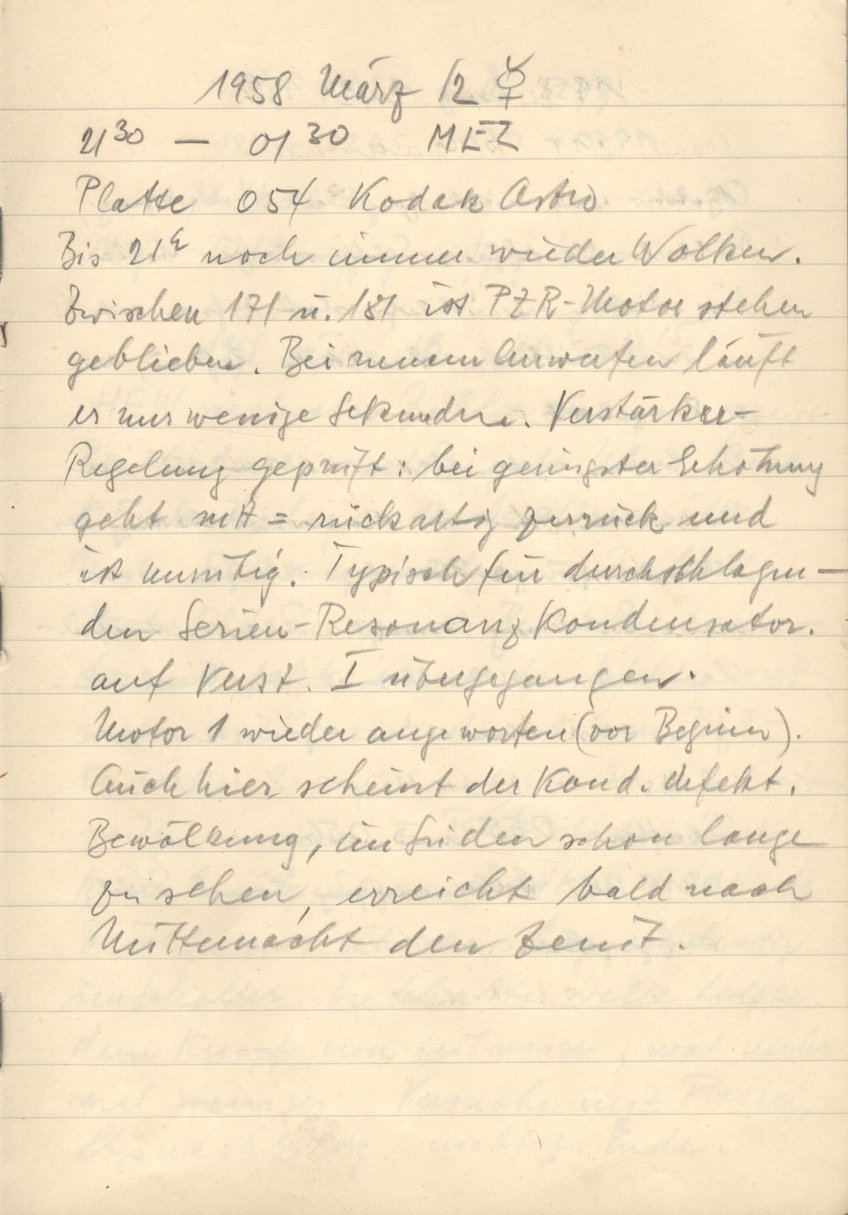 1958 März 12 ☿
21³⁰ — 01³⁰ MEZ
Platte 054 Kodak Astro
Bis 21ʰ noch immer wieder Wolken.
Zwischen 171 u. 181 ist PZR-Motor stehen
geblieben. Bei neuem Anwerfen läuft
er nur wenige Sekunden. Verstärker-
Regelung geprüft: bei geringster Erhöhung
geht mA = ruckartig zurück und
ist unruhig. Typisch für durchschlagen-
den Serien-Resonanz Kondensator.
auf Verst. I übergegangen.
Motor 1 wieder angeworfen (vor Beginn).
Auch hier scheint der Kond. defekt.
Bewölkung, im Süden schon lange
zu sehen, erreicht bald nach
Mitternacht den Zenit.